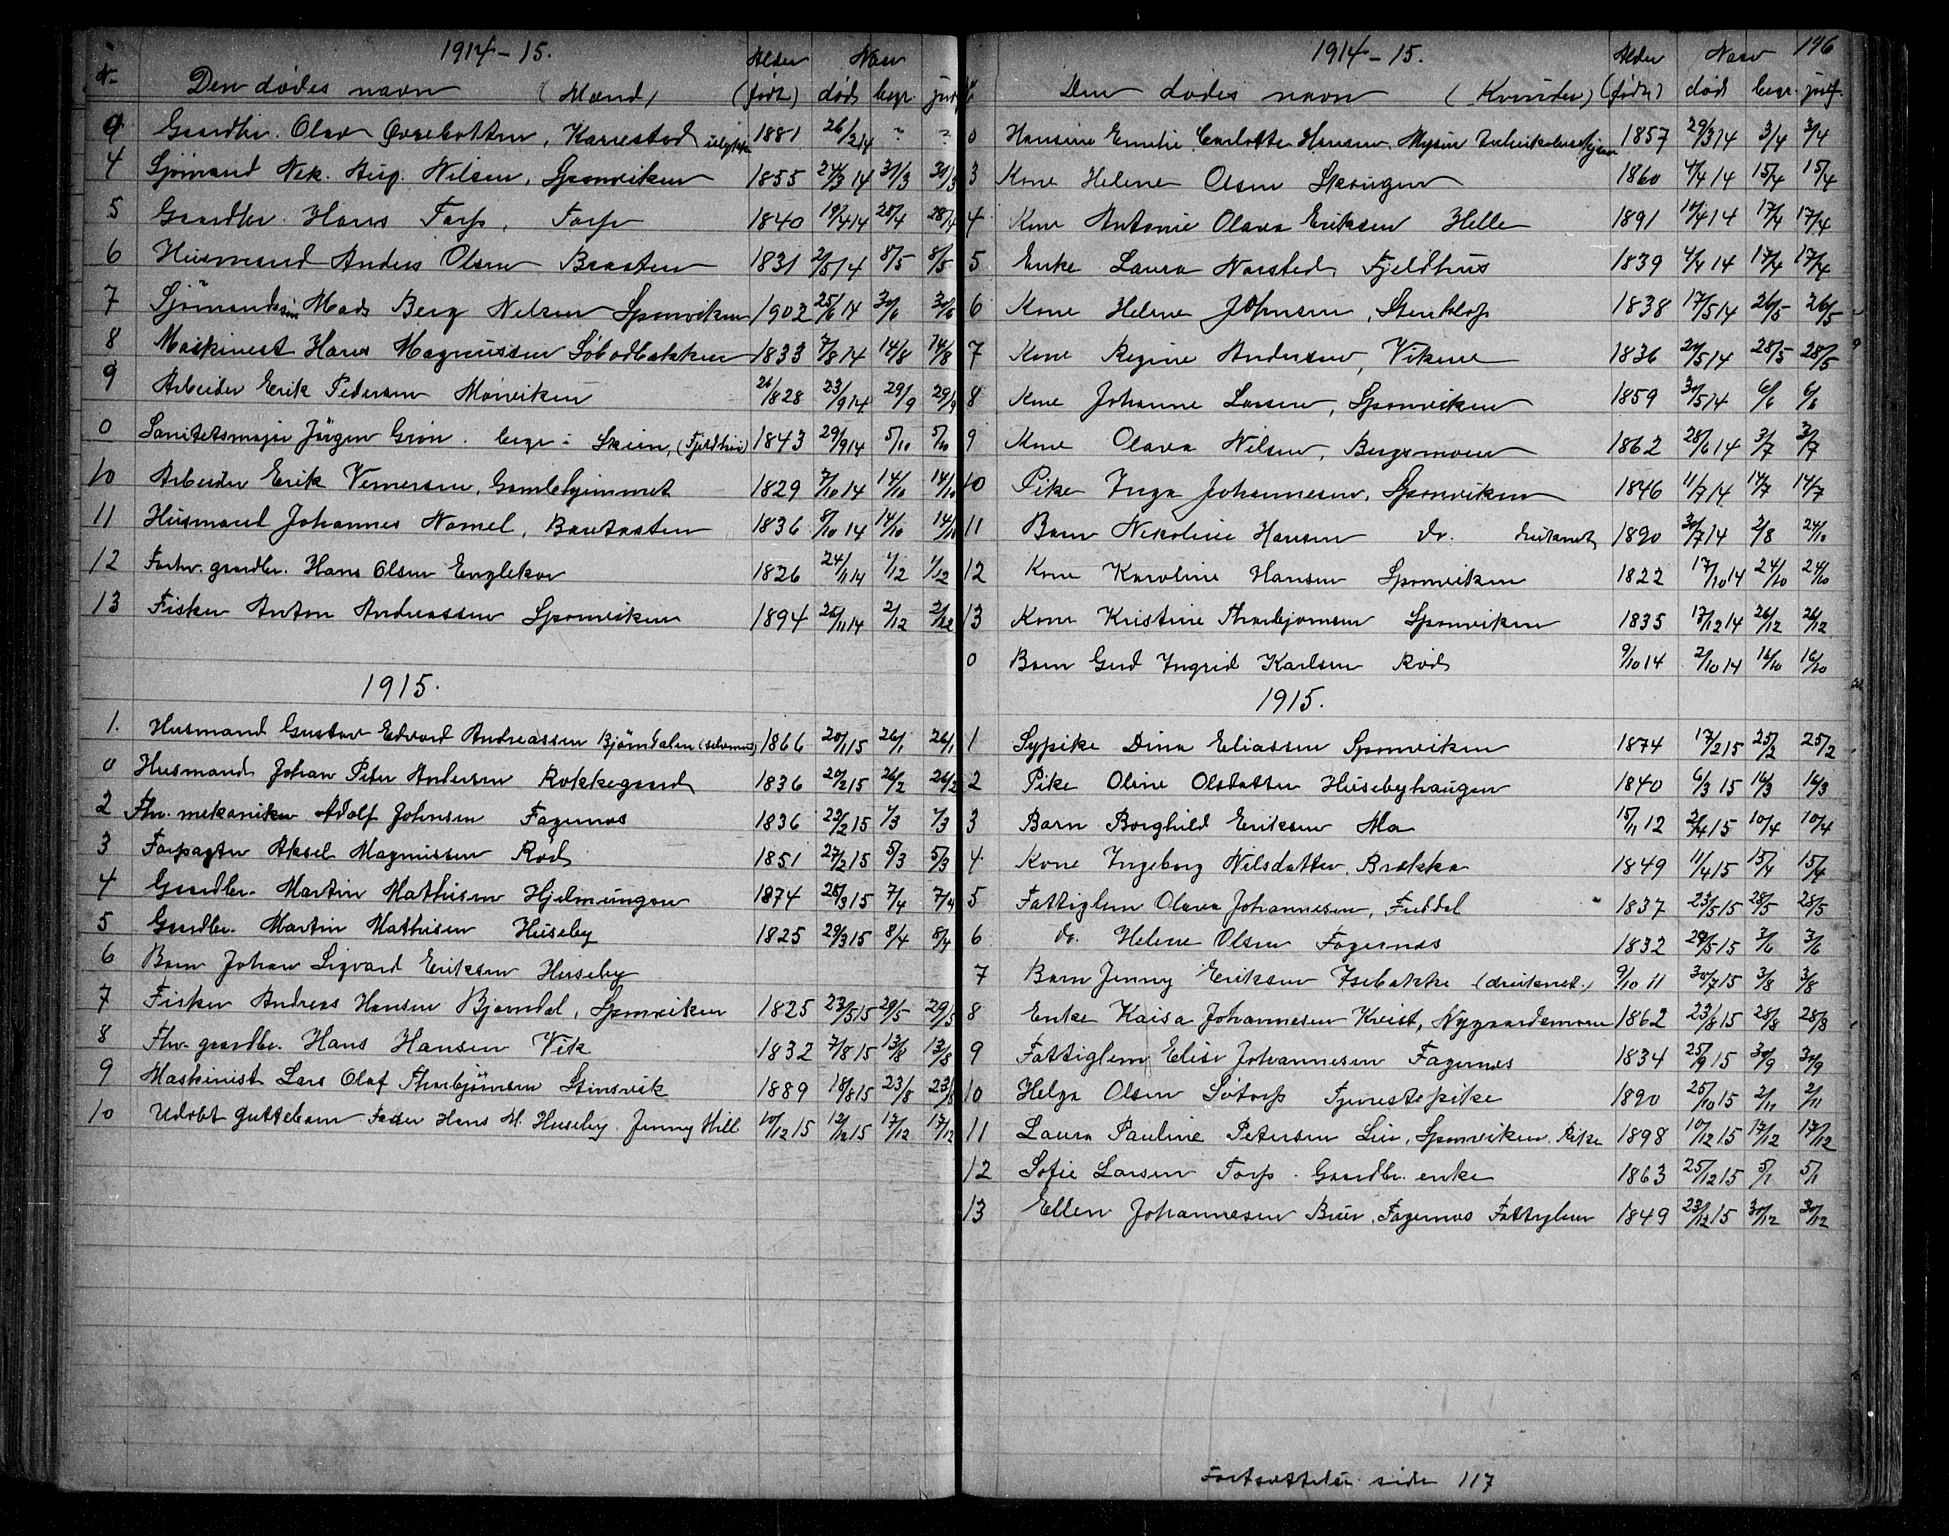 1914-15.
Nr. Den dødes navn (Mænd) Alder (født) Naar død begr. jordf.
0 Gaardbr. Olav Øvrebotten, Karrestad ulykke 1881 26/2 14 " "
4 Sjømand Nik. Aug. Nilsen, Sponviken 1855 24/3 14 31/3 31/3
5 Gaardbr. Hans Torp, Torp 1840 19/4 14 28/4 28/4
6 Husmand Anders Olsen Braaten 1831 2/5 14 8/5 8/5
7 Sjømandssøn Mads Berg Nilsen Sponviken 1902 25/6 14 30/6 30/6
8 Maskinist Hans Magnussen Søbodbakken 1833 7/8 14 14/8 14/8
9 Arbeider Erik Pedersen Mørviken 1828 23/9 14 29/9 29/9
0 Sanitetsmajor Jørgen Grøn. begr. i Skien, (Fjeldhus) 1843 29/9 14 5/10 5/10
10 Arbeider Erik Vernersen, Gamlehjemmet 1829 7/10 14 14/10 14/10
11 Husmand Johannes Nomel, Bautasten 1836 8/10 14 14/10 14/10
12 Forhv. gaardbr. Hans Olsen Englekor 1826 24/11 14 1/12 1/12
13 Fisker Anton Andreassen Sponviken 1894 26/11 14 2/12 2/12
1915.
1. Husmand Gustav Edvard Andreassen Bjørndalen (selvmord) 1866 20/1 15 26/1 26/1
0 Husmand Johan Peter Andersen Rokkegaard 1836 20/2 15 26/2 26/2
2 Fhv. mekaniker Adolf Johnsen Fagernæs 1836 23/2 15 1/3 1/3
3 Forpagter Aksel Magnussen Rød 1851 27/2 15 5/3 5/3
4 Gaardbr. Martin Mathisen Hjelmungen 1874 28/3 15 7/4 7/4
5 Gaardbr. Martin Mathisen Huseby 1825 29/3 15 8/4 8/4
6 Barn Johan Sigvard Eriksen Huseby
7 Fisker Andreas Hansen Bjørndal, Sponviken 1825 23/5 15 29/5 29/5
8 Fhv. gaardbr. Hans Hansen Vik 1832 7/8 15 13/8 13/8
9 Maskinist Lars Olaf Thorbjørnsen Stensvik 1889 18/8 15 23/8 23/8
10 Udøbt guttebarn Fader Hans M. Huseby. Jenny Hill 10/12 15 12/12 15 17/12 17/12
1914-15. 146
Den dødes navn (Kvinder) Alder (født) Naar død begr. jordf.
0 Hansine Emilie Carlotte Hansen, Mysen 1857 29/3 14 3/4 3/4
3 Kone Helene Olsen Skaugen 1860 4/4 14 15/4 15/4
4 Kone Antonie Olava Eriksen Helle 1891 10/4 14 17/4 17/4
5 Enke Laura Norsted, Fjeldhus 1839 4/4 14 17/4 17/4
6 Kone Helene Johnsen, Stenklop 1838 17/5 14 26/5 26/5
7 Kone Regine Andersen, Vikene 1836 21/5 14 28/5 28/5
8 Kone Johanne Larsen, Sponviken 1859 30/5 14 6/6 6/6
9 Kone Olava Nilsen, Bergsmoen 1862 28/6 14 3/7 3/7
10 Pike Inga Johannesen, Sponviken 1846 11/7 14 17/7 17/7
11 Barn Nikoline Hansen do. druknet 1890 30/7 14 2/8 24/10
12 Kone Karoline Hansen Sponviken 1822 17/10 14 24/10 24/10
13 Kone Kristine Thorbjørnsen Sponviken 1835 17/12 14 26/12 26/12
0 Barn Gerd Ingrid Karlsen Rød 9/10 14 2/10 14 16/10 16/10
1915.
1 Sypike Dina Eliassen Sponviken 1874 17/2 15 25/2 25/2
2 Pike Oline Olsdatter Husebyhaugen 1840 6/3 15 16/3 16/3
3 Barn Borghild Eriksen Mo 15/11 12 2/4 15 10/4 10/4
4 Kone Ingeborg Nilsdatter Brækka 1849 11/4 15 15/4 15/4
5 Fattiglem Olava Johannesen, Fuddal 1837 23/5 15 28/5 28/5
6 do. Helene Olsen Fagernæs 1832 29/5 15 3/6 3/6
7 Barn Jenny Eriksen Isebakke (druknet.) 9/10 11 30/7 15 3/8 3/8
8 Enke Kaisa Johannesen Kvist, Nygaardsmoen 1862 23/8 15 28/8 28/8
9 Fattiglem Elise Johannesen Fagernæs 1834 25/9 15 30/9 30/9
10 Helga Olsen Søtorp Tjenestepike 1890 25/10 15 2/11 2/11
11 Laura Pauline Petersen Lie, Sponviken. Pike 1898 10/12 15 17/12 17/12
12 Sofie Larsen Torp. Gaardbr. enke 1863 25/12 15 5/1 5/1
13 Ellen Johannesen Buer, Fagernæs Fattiglem 1849 23/12 15 30/12 30/12
Fortsættelse side 117